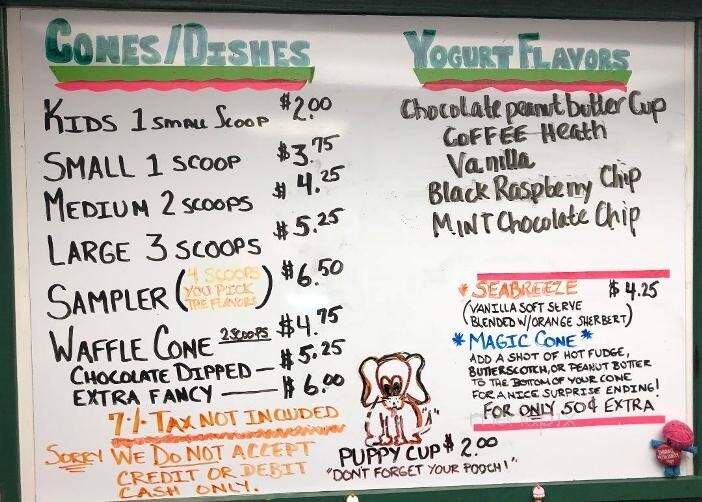 CONES/DISHES
KIDS 1 SMALL SCOOP $2.00
SMALL 1 SCOOP $3.75
MEDIUM 2 SCOOPS $4.25
LARGE 3 SCOOPS $5.25
SAMPLER (4 SCOOPS YOU PICK THE FLAVORS) $6.50
WAFFLE CONE 2 SCOOPS $4.75
CHOCOLATE DIPPED — $5.25
EXTRA FANCY — $6.00
7% TAX NOT INCLUDED
SORRY WE DO NOT ACCEPT
CREDIT OR DEBIT
CASH ONLY.
YOGURT FLAVORS
Chocolate peanut butter Cup
COFFEE Heath
Vanilla
Black Raspberry Chip
MINT Chocolate Chip
* SEABREEZE $4.25
(VANILLA SOFT SERVE
BLENDED W/ORANGE SHERBERT)
* MAGIC CONE *
ADD A SHOT OF HOT FUDGE,
BUTTERSCOTCH, OR PEANUT BUTTER
TO THE BOTTOM OF YOUR CONE
FOR A NICE SURPRISE ENDING!
FOR ONLY 50¢ EXTRA
PUPPY CUP $2.00
"DONT FORGET YOUR POOCH!"